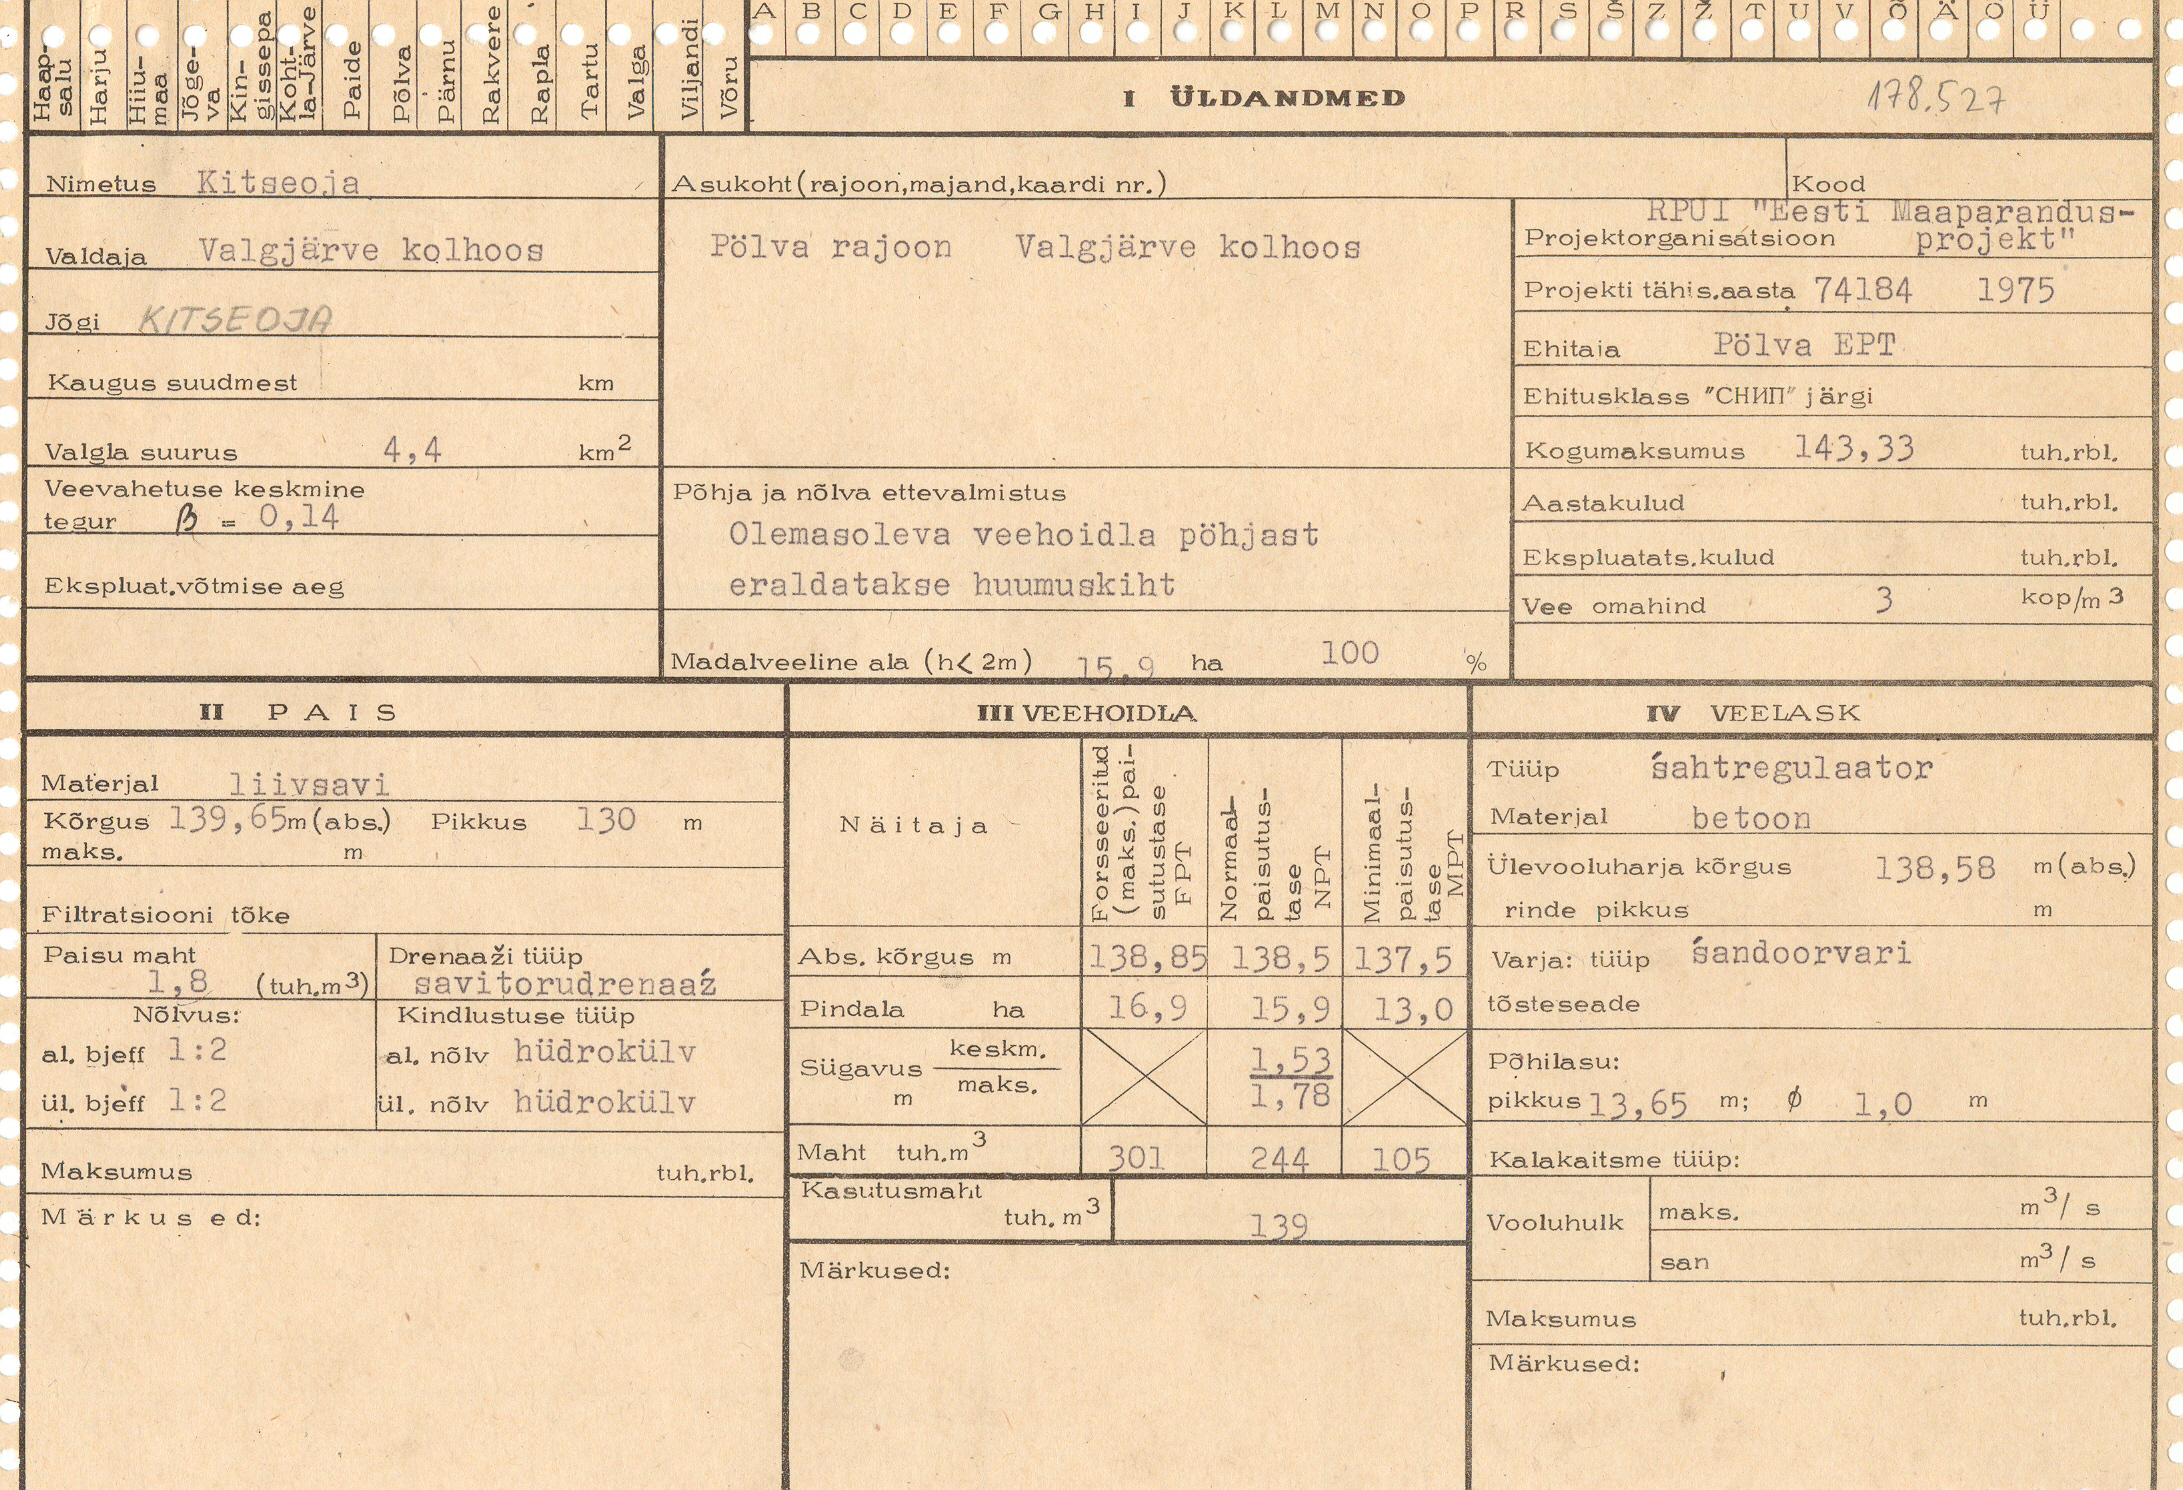 A B C D E F G H I J K L M N O P R S Š Z Ž T U V Õ Ä Ö Ü
Haap-
salu
Harju
Hiiu-
maa
Jõge-
va
Kin-
gissepa
Koht-
la-Järve
Paide
Põlva
Pärnu
Rakvere
Rapla
Tartu
Valga
Viljandi
Võru
I ÜLDANDMED
178.527
Nimetus Kitseoja
Valdaja Valgjärve kolhoos
Jõgi KITSEOJA
Kaugus suudmest km
Valgla suurus 4,4 km2
Veevahetuse keskmine
tegur β = 0,14
Ekspluat.võtmise aeg
Asukoht(rajoon,majand,kaardi nr.)
Pölva rajoon Valgjärve kolhoos
Põhja ja nõlva ettevalmistus
Olemasoleva veehoidla pöhjast
eraldatakse huumuskiht
Madalveeline ala (h< 2m) 15,9 ha 100 %
Kood
RPUI "Eesti Maaparandus-
Projektorganisatsioon projekt"
Projekti tähis.aasta 74184 1975
Ehitaja Pölva EPT
Ehitusklass "СНИП" järgi
Kogumaksumus 143,33 tuh.rbl.
Aastakulud tuh.rbl.
Ekspluatats.kulud tuh.rbl.
Vee omahind 3 kop/m3
II PAIS
Materjal liivsavi
Kõrgus 139,65m(abs.) Pikkus 130 m
maks. m
Filtratsiooni tõke
Paisu maht
1,8 (tuh.m3)
Drenaaži tüüp
savitorudrenaaź
Nõlvus:
al. bjeff 1:2
ül. bjeff 1:2
Kindlustuse tüüp
al. nõlv hüdrokülv
ül. nõlv hüdrokülv
Maksumus tuh.rbl.
Märkused:
III VEEHOIDLA
Näitaja
Forsseeritud
(maks.)pai-
sutustase
FPT
Normaal-
paisutus-
tase
NPT
Minimaal-
paisutus-
tase
MPT
Abs. kõrgus m 138,85 138,5 137,5
Pindala ha 16,9 15,9 13,0
Sügavus keskm. 1,53
m maks. 1,78
Maht tuh.m3 301 244 105
Kasutusmaht
tuh.m3 139
Märkused:
IV VEELASK
Tüüp śahtregulaator
Materjal betoon
Ülevooluharja kõrgus 138,58 m(abs.)
rinde pikkus m
Varja: tüüp śandoorvari
tõsteseade
Põhilasu:
pikkus 13,65 m; Ø 1,0 m
Kalakaitsme tüüp:
Vooluhulk maks. m3/ s
san m3/ s
Maksumus tuh.rbl.
Märkused: